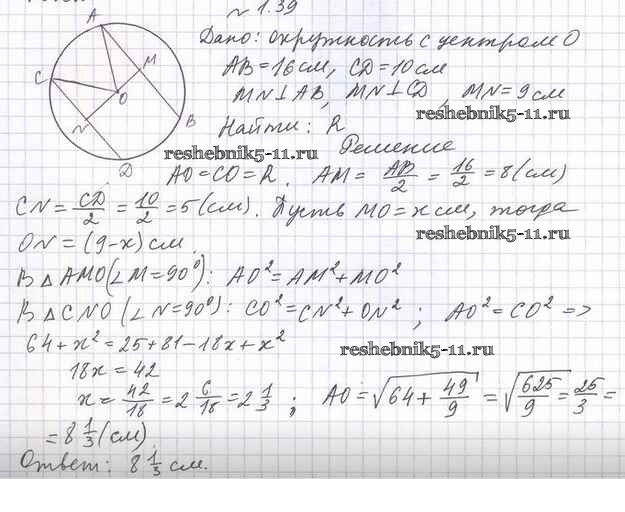 № 1.39
Дано: окружность с центром O
AB = 16 см, CD = 10 см
MN ⊥ AB, MN ⊥ CD, MN = 9 см
reshebnik5-11.ru
Найти: R
A
M
C
O
N
B
D
Решение
reshebnik5-11.ru
AO = CO = R. AM = AB/2 = 16/2 = 8 (см)
CN = CD/2 = 10/2 = 5 (см). Пусть MO = x см, тогда
reshebnik5-11.ru
ON = (9-x) см.
В △ AMO (∠M = 90°): AO² = AM² + MO²
В △ CNO (∠N = 90°): CO² = CN² + ON² ; AO² = CO² =>
64 + x² = 25 + 81 - 18x + x²
reshebnik5-11.ru
18x = 42
x = 42/18 = 2 6/18 = 2 1/3 ; AO = √(64 + 49/9) = √(625/9) = 25/3 =
= 8 1/3 (см)
Ответ: 8 1/3 см.